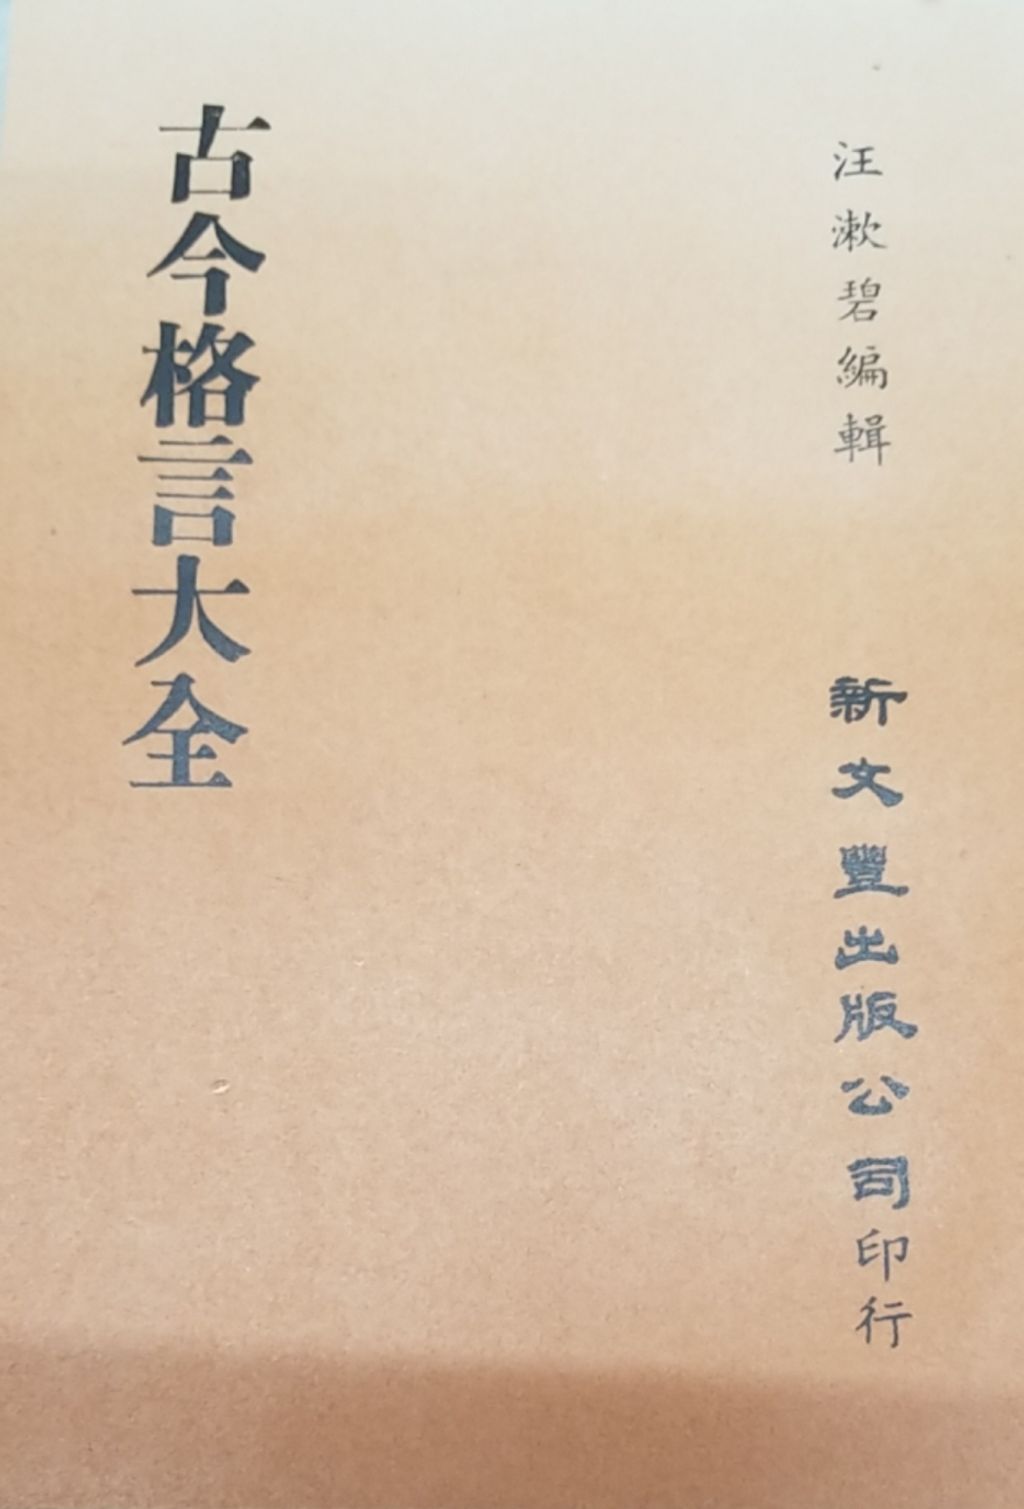 汪漱碧編輯
新文豐出版公司印行
古今格言大全